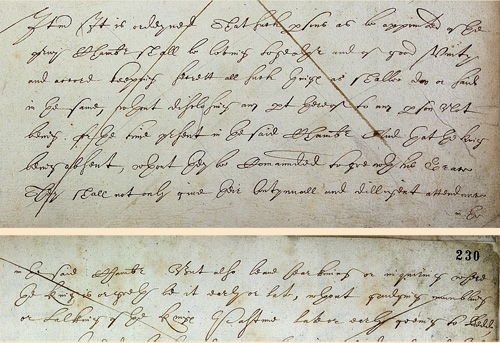 Item It is ordeyned That such psons as be appointed of the
privy Chambr shall be loving together and of good Unity
and accord keeping secrett all such things as shalbe don or said
in the same, without disclosing any pt thereof to any pson not
being for the time present in the said Chambr And that the King
being absent, without they be Comanded to goe with his Grace
They shall not only give their Contynuall and dilligent attendance
in the
230
in the said Chambr But also leave hearkning or inquiring where
the King is or goeth be it early or late, without grudging mumbling
or talking of the Kings Pastime late or early going to bedd